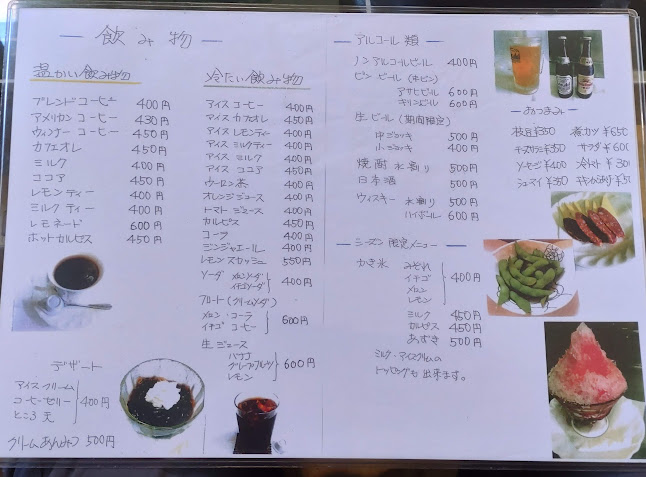 飲み物
温かい飲み物
ブレンドコーヒー 400円
アメリカンコーヒー 430円
ウィンナーコーヒー 450円
カフェオレ 450円
ミルク 400円
ココア 450円
レモンティー 400円
ミルクティー 400円
レモネード 600円
ホットカルピス 450円
デザート
アイスクリーム
コーヒーゼリー 400円
ところ天
クリームあんみつ 500円
冷たい飲み物
アイスコーヒー 400円
アイスカフェオレ 450円
アイスレモンティー 400円
アイスミルクティー 400円
アイスミルク 400円
アイスココア 450円
ウーロン茶 400円
オレンジジュース 400円
トマトジュース 400円
カルピス 400円
コーラ 400円
ジンジャエール 400円
レモンスカッシュ 550円
ソーダ メロンソーダ
イチゴソーダ 400円
フロート(クリームソーダ)
メロン・コーラ
イチゴ コーヒー 600円
生ジュース
バナナ
グレープフルーツ 600円
レモン
アルコール類
ノンアルコールビール 400円
ビンビール(中ビン)
アサヒビール 600円
キリンビール 600円
生ビール(期間限定)
中ジョッキ 500円
小ジョッキ 400円
焼酎 水割り 500円
日本酒 500円
ウィスキー 水割り 500円
ハイボール 600円
シーズン限定メニュー
かき氷 みぞれ
イチゴ 400円
メロン
レモン
ミルク 450円
カルピス 450円
あずき 500円
ミルク・アイスクリームの
トッピングも出来ます。
おつまみ
枝豆¥350 串カツ¥650
チーズサラミ¥350 サラダ¥600
ソーセージ¥400 冷トマト¥300
シューマイ¥350